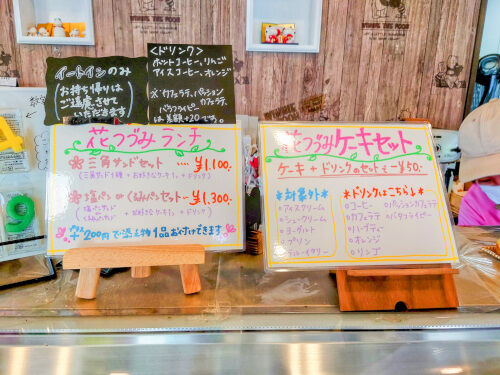 イートインのみ
お持ち帰りは
ご遠慮させて
いただきます
<ドリンク>
ホットコーヒー、りんご
アイスコーヒー、オレンジ
カフェラテ、パッション
バタフライピー
カフェラテ、
は差額+20です。
花つづみランチ
三角サンドセット ‥‥ ¥1,100.
+ お好きなケーキ1ヶ + ドリンク)
塩パン or くるみパンセット… ¥1,300.
+ お好きなケーキ1ヶ + ドリンク)
+200円で添え物1品お付けできます
花つづみケーキセット
ケーキ + ドリンクのセットで ー¥50.
*対象外*
○アイスクリーム
○シュークリーム
○ヨーグルト
○プリン
*ドリンクはこちら↓*
○コーヒー ○パッションカフェラテ
○カフェラテ ○バタフライピー
○ハーブティー
○オレンジ
○リンゴ